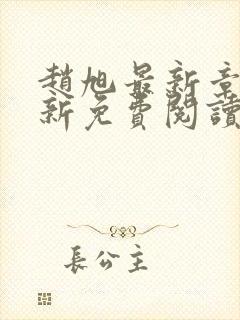 趙旭最新章
新免費閱讀
長公主